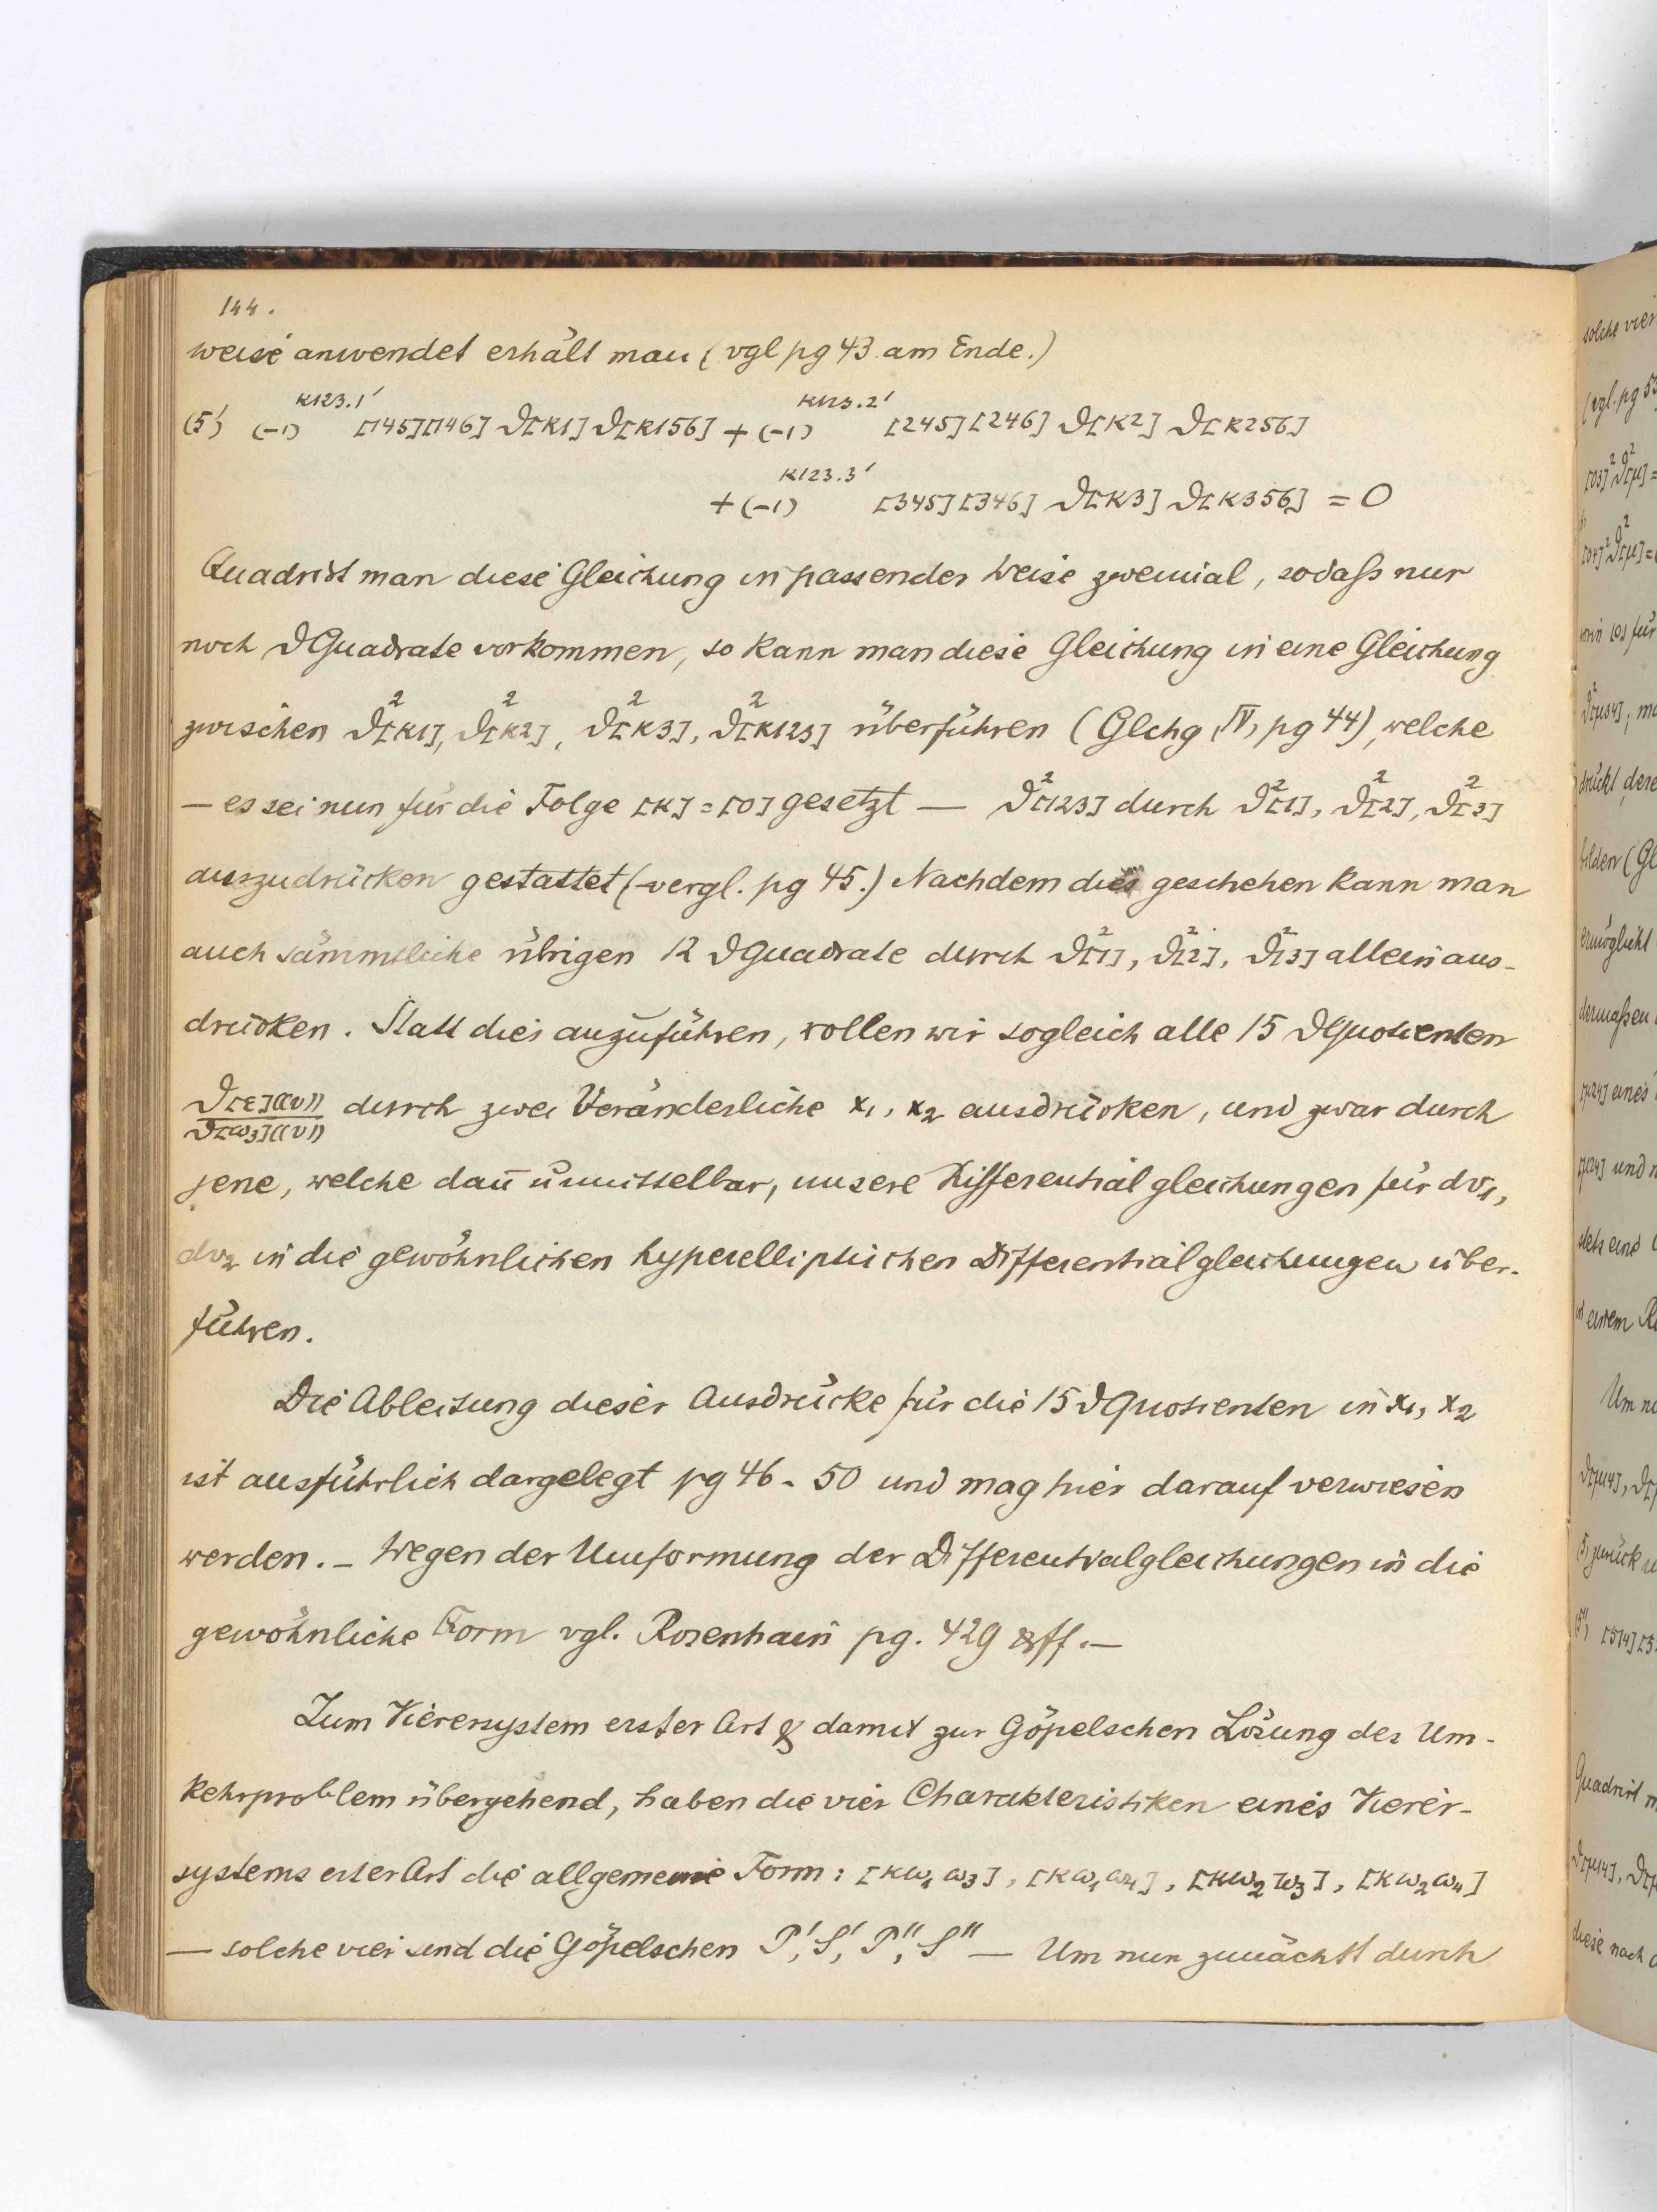 144.
weise anwendet erhält man (vgl pg 43 am Ende.)
(5') (-1)^{K123.1'} [145][146] ϑ[K1] ϑ[K156] + (-1)^{K123.2'} [245][246] ϑ[K2] ϑ[K256]
+ (-1)^{K123.3'} [345][346] ϑ[K3] ϑ[K356] = 0
Quadrirt man diese Gleichung in passender Weise zweimal, sodaß nur
noch ϑQuadrate vorkommen, so kann man diese Gleichung in eine Gleichung
zwischen ϑ²[K1], ϑ²[K2], ϑ²[K3], ϑ²[K123] überführen (Glchg IV, pg 44), welche
– es sei nun für die Folge [K] = [0] gesetzt – ϑ²[123] durch ϑ²[1], ϑ²[2], ϑ²[3]
auszudrücken gestattet (vergl. pg 45.) Nachdem dies geschehen kann man
auch sämmtliche übrigen 12 ϑQuadrate durch ϑ²[1], ϑ²[2], ϑ²[3] allein aus-
drücken. Statt dies auzuführen, wollen wir sogleich alle 15 ϑQuotienten
ϑ[ε]((v))/ϑ[ω₃]((v)) durch zwei Veränderliche x₁, x₂ ausdrücken, und zwar durch
jene, welche dan̄ unmittelbar, unsere Differentialgleichungen für dv₁,
dv₂ in die gewöhnlichen hyperelliptischen Differentialgleichungen über-
führen.
Die Ableitung dieser Ausdrücke für die 15 ϑQuotienten in x₁, x₂
ist ausführlich dargelegt pg 46 - 50 und mag hier darauf verwiesen
werden. – Wegen der Umformung der Differentialgleichungen in die
gewöhnliche Form vgl. Rosenhain pg. 429 & ff. –
Zum Vierersystem erster Art & damit zur Göpelschen Lösung des Um-
kehrproblem übergehend, haben die vier Charakteristiken eines Vierer-
systems erster Art die allgemeine Form: [Kω₁ω₃], [Kω₁ω₄], [Kω₂ω₃], [Kω₂ω₄]
– solche vier sind die Göpelschen P', S', P'', S'' – Um nun zunächst durch